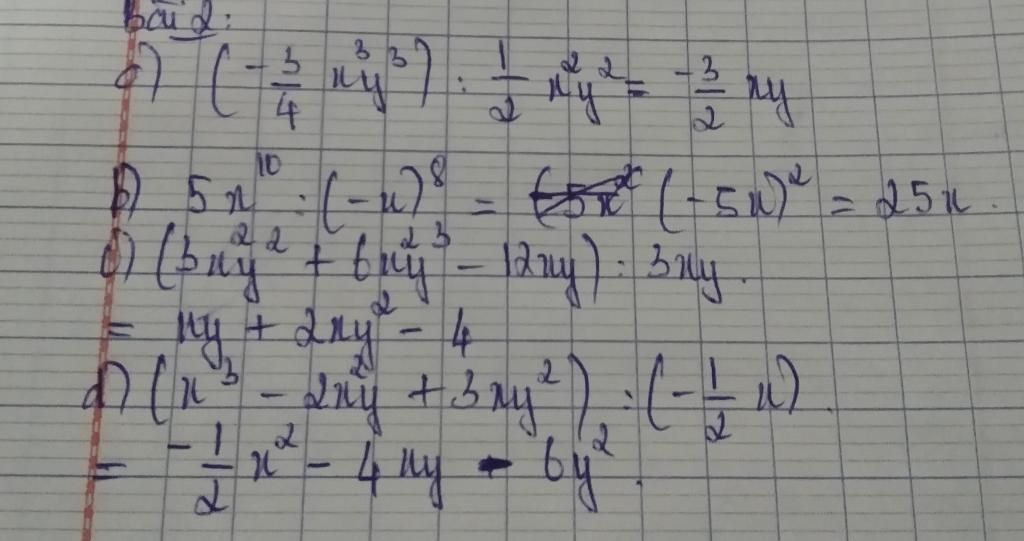 Bài 2:
a) (-3/4 x³y³) : 1/2 x²y² = -3/2 xy
b) 5x¹⁰ : (-x)⁸ = (-5x)² = 25x.
c) (3x²y² + 6x²y³ - 12xy) : 3xy.
= xy + 2xy² - 4
d) (x³ - 2x²y + 3xy²) : (-1/2 x).
= -1/2 x² - 4xy - 6y².